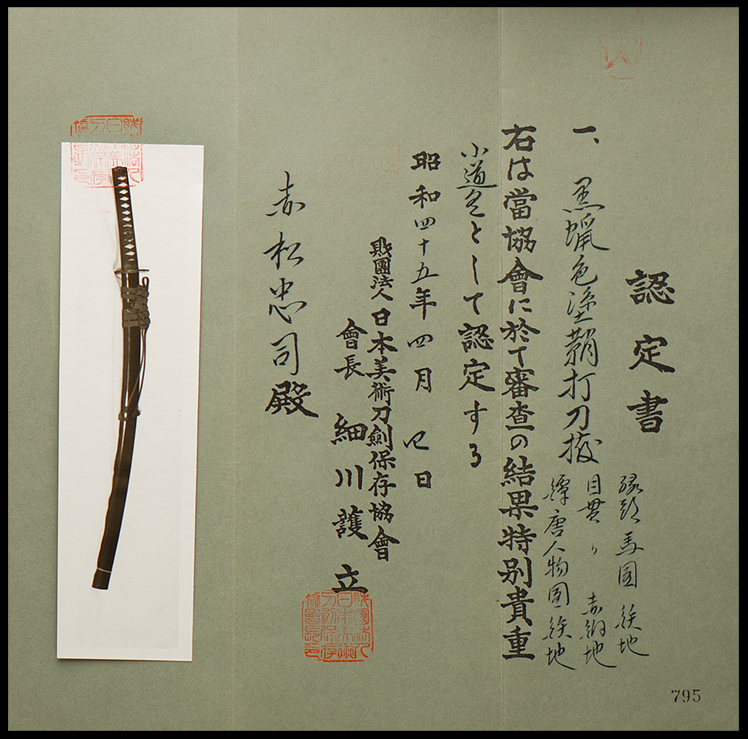 認定書
一、黒蝋色塗鞘打刀拵
縁頭馬図鉄地
目貫〃赤銅地
鐔唐人物図鉄地
右は當協會に於て審査の結果特別貴重
小道具として認定する
昭和四十五年四月 日
財團法人日本美術刀劍保存協會
會長 細川護立
赤松忠司殿
795